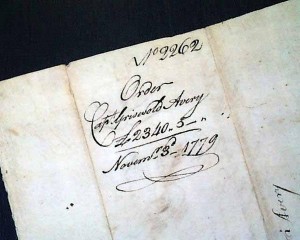 No 2262
Order
Capt Griswold Avery
£2340.. 5 - "
Novemr 3d - 1779
Avery